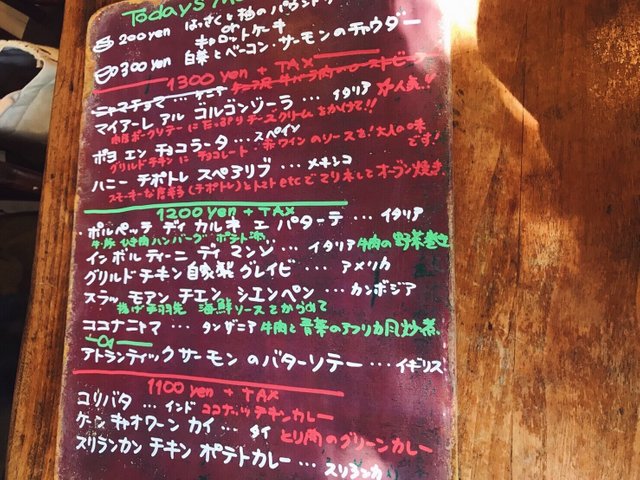 Todays M
200yen はっさくと柚のパウンドケーキ
or
キャロットケーキ
300yen 白菜とベーコン・サーモンのチャウダー
1300 yen + TAX
ニャマチョマ … ケニア
マイアーレ アル ゴルゴンゾーラ … イタリア 人気!!
ポークソテーに たっぷりチーズクリームをかけて!!
ポヨ エン チョコラータ … スペイン
グリルドチキンに チョコレート・赤ワインのソースを!大人の味です!
ハニー チポトレ スペアリブ … メキシコ
スモーキーな唐辛子(チポトレ)とトマトetcでマリネしてオーブン焼き
1200 yen + TAX
ポルペッテ ディ カルネ エ パターテ … イタリア
牛豚ひき肉ハンバーグ ポテト
インボルティーニ ディ マンゾ … イタリア 牛肉の野菜巻
グリルドチキン自家製グレイビー … アメリカ
スラッ モアン チエン シエンペン … カンボジア
揚げ手羽先 海鮮ソースとからめて
ココナニャマ … タンザニア 牛肉と青菜のアフリカ風炒煮
アトランティックサーモンのバターソテー … イギリス
1100 yen + TAX
コリバタ … インド ココナッツチキンカレー
ケーン キャオワーン カイ … タイ とり肉のグリーンカレー
スリランカン チキン ポテトカレー … スリランカ